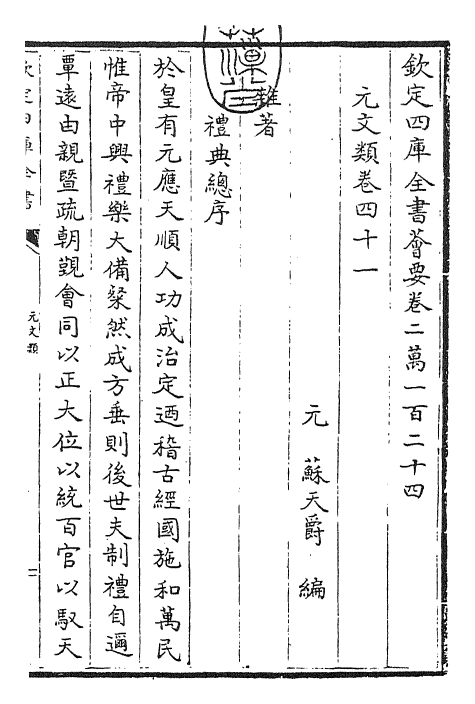 欽定四庫全書薈要卷二萬一百二十四
元文類卷四十一
元 蘇天爵 編
雜著
禮典總序
於皇有元應天順人功成治定迺稽古經國施和萬民
惟帝中興禮樂大備粲然成方垂則後世夫制禮自邇
覃遠由親暨疏朝覲會同以正大位以統百官以馭天
欽定四庫全書
元文類